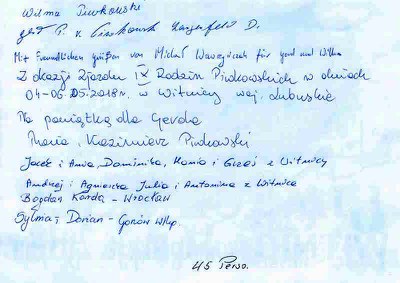 Wilma Piwkowski
P. v.
Mit Freundlichen Grüßen von Michał Wawrzyniak für Gerd und Wilma
Z okazji Zjazdu IX Rodzin Piwkowskich w dniach
04-06.05.2018r. w Witnicy woj. lubuskie
Na pamiątkę dla Gerda
Maria, Kazimierz Piwkowski
Jacek i Ania, Dominika, Hania i Grześ z Witnicy
Andrzej i Agnieszka Julia i Antonina z Witnica
Bogdan Karda - Wrocław
Sylwia; Dorian - Gorzów Wlkp.
45 Perso.